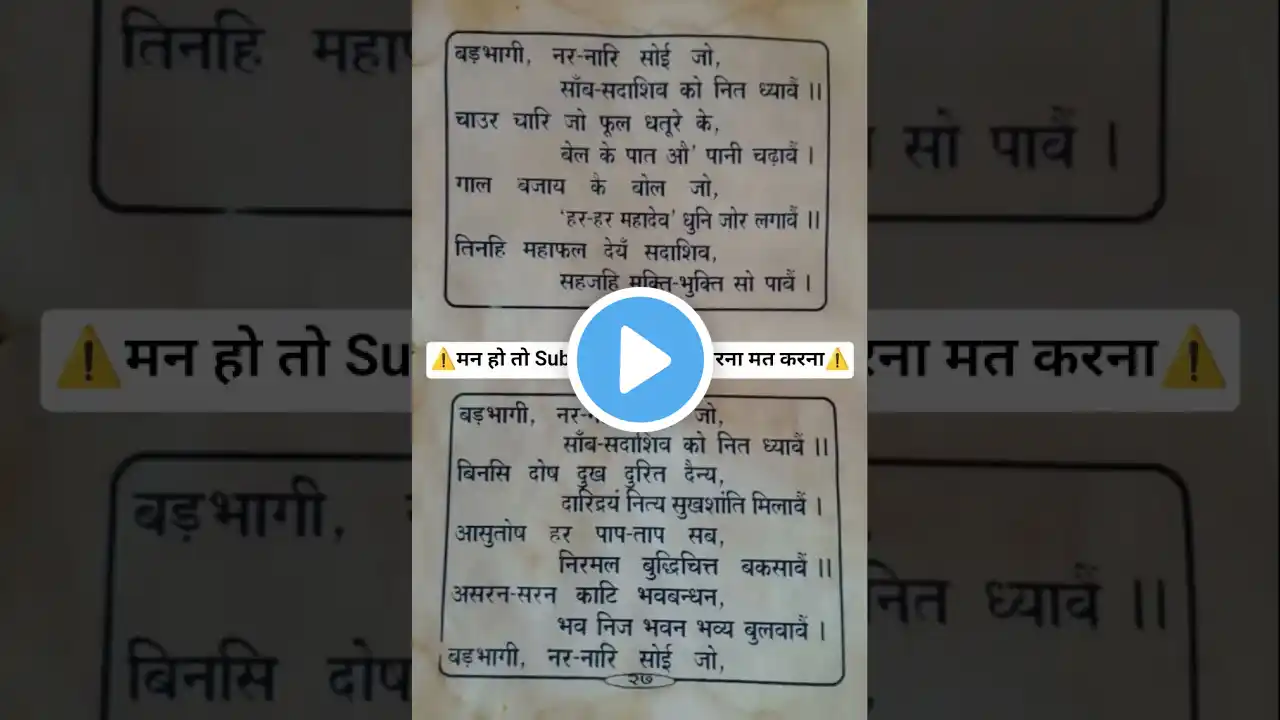 बड़भागी, नर-नारि सोई जो,
साँब-सदाशिव को नित ध्यावैं ।।
चाउर चारि जो फूल धतूरे के,
बेल के पात औ' पानी चढ़ावैं ।
गाल बजाय कै बोल जो,
'हर-हर महादेव' धुनि जोर लगावैं ।।
तिनहि महाफल देयँ सदाशिव,
सहजहि मुक्ति-भुक्ति सो पावैं ।
⚠️मन हो तो Sub रना मत करना⚠️
बड़भागी, नर- जो,
साँब-सदाशिव को नित ध्यावैं ।।
बिनसि दोष दुख दुरित दैन्य,
दारिद्रयं नित्य सुखशांति मिलावैं ।
आसुतोष हर पाप-ताप सब,
निरमल बुद्धिचित्त बकसावैं ।।
असरन-सरन काटि भवबन्धन,
भव निज भवन भव्य बुलवावैं ।
बड़भागी, नर-नारि सोई जो,
२७
तिनहि महा
सो पावैं ।
⚠️मन हो तो Su
रना मत करना⚠️
बड़भागी,
नित ध्यावैं ।।
बिनसि दोष